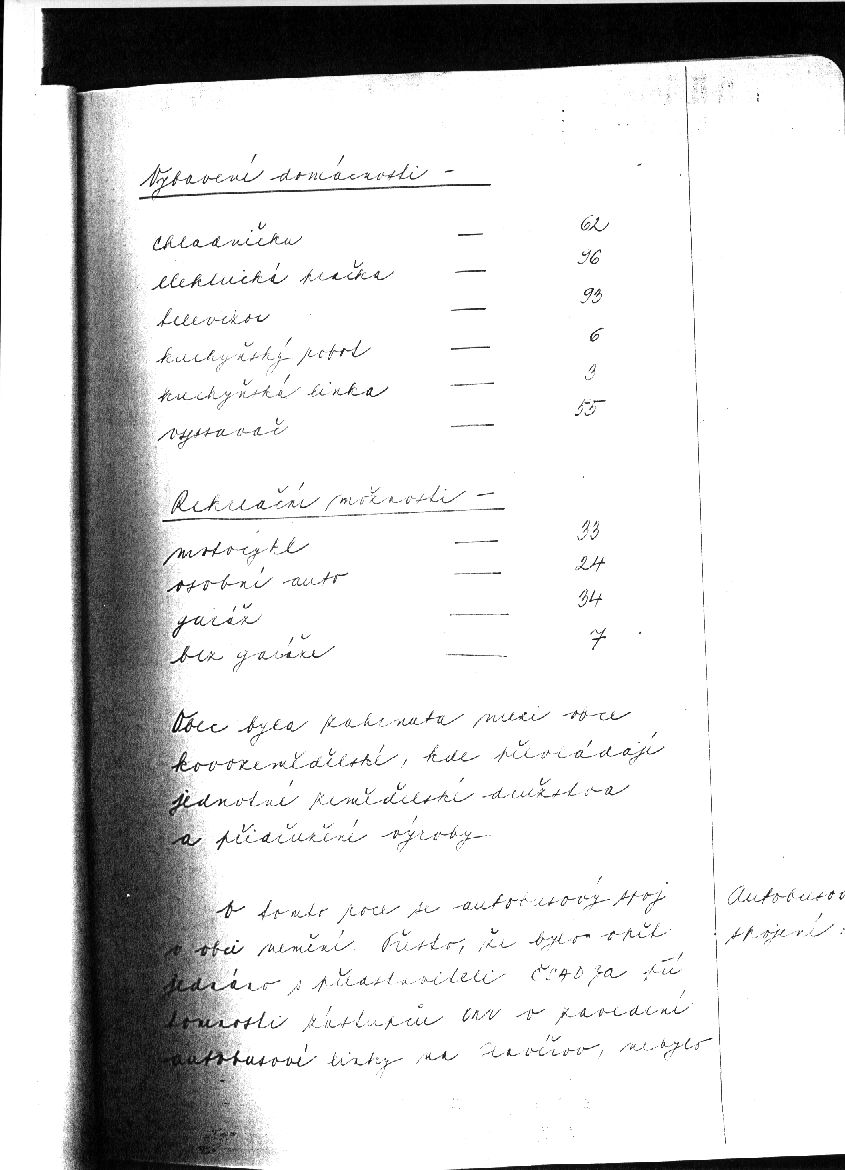 Vybavení domácnosti -
chladnička — 62
elektrická pračka — 96
televizor — 93
kuchyňský robot — 6
kuchyňská linka — 3
vyssavač — 55
Rekreační možnosti -
motocykl — 33
osobní auto — 24
garáž — 34
bez garáže — 7
Obec byla zahrnuta mezi obce
kovozemědělské, kde převládají
jednotné zemědělské družstva
a přidružené výroby
V tomto roce se autobusový spoj
v obci nemění. Přesto, že bylo opět
jednáno s představiteli ČSAD za pří
tomnosti zástupců ONV o zavedení
autobusové linky na Havířov, nebylo
Autobusov
spojení.